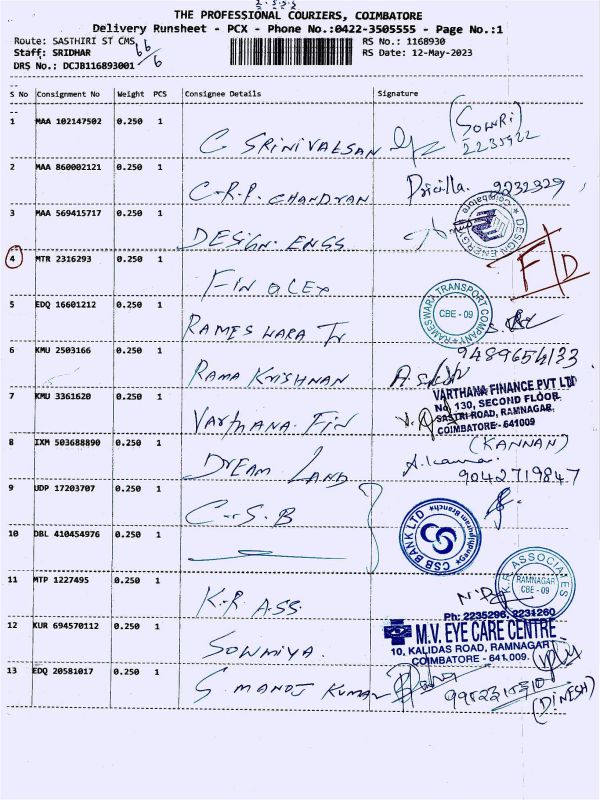 THE PROFESSIONAL COURIERS, COIMBATORE
Delivery Runsheet - PCX - Phone No.:0422-3505555 - Page No.:1
Route: SASTHIRI ST CMS
RS No.: 1168930
Staff: SRIDHAR
66/6
RS Date: 12-May-2023
DRS No.: DCJB116893001
S No Consignment No Weight PCS Consignee Details Signature
1 MAA 102147502 0.250 1 C SRINIVALSAN (SOWRI) 2235922
2 MAA 860002121 0.250 1 C-R.P. CHANDRAN Pricilla. 2232329
3 MAA 569415717 0.250 1 DESIGN. ENGG
4 MTR 2316293 0.250 1 FINOLEX F/D
5 EDQ 16601212 0.250 1 RAMESWARA Tr
RAMESWARA TRANSPORT COMPANY
CBE - 09
6 KMU 2503166 0.250 1 RAMA KRISHNAN 9489654133
7 KMU 3361620 0.250 1 VARTHANA FIN
VARTHANA FINANCE PVT LTD
No 130, SECOND FLOOR
SASTRI ROAD, RAMNAGAR,
COIMBATORE - 641009
8 IXM 503688890 0.250 1 DREAM LAND (KANNAN) 9042719847
9 UDP 17203707 0.250 1 C-S.B
CSB BANK LTD
10 DBL 410454976 0.250 1
11 MTP 1227495 0.250 1 K.R. ASS.
K.R. ASSOCIATES
RAMNAGAR
CBE - 09
12 KUR 694570112 0.250 1 SOWMIYA.
Ph: 2235296, 2231260
M.V. EYE CARE CENTRE
10, KALIDAS ROAD, RAMNAGAR
COIMBATORE - 641 009.
13 EDQ 20581017 0.250 1 S. MANOJ KUMAR (DINESH)